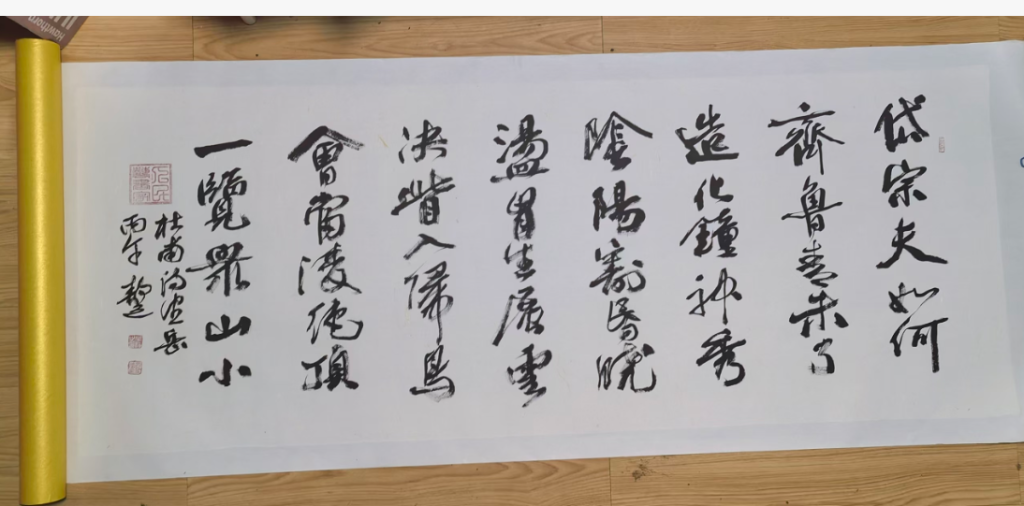 Hawthorn
岱宗夫如何
齊魯青未了
造化鐘神秀
陰陽割昏曉
盪胷生層雲
决眥入歸鳥
會當淩絕頂
一覽眾山小
杜甫詩望岳
丙午